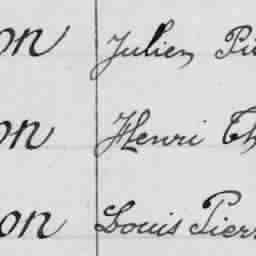 on Julien Pi
on Henri Th
on Louis Pierr